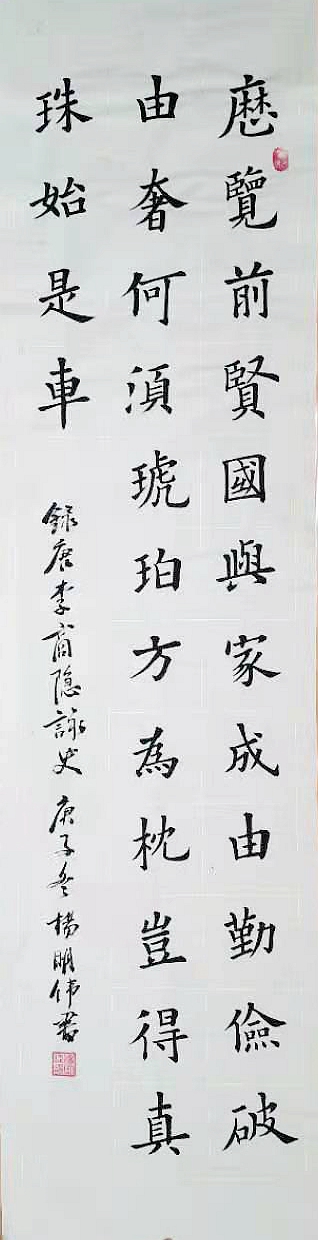 歷覽前賢國與家成由勤儉破
由奢何須琥珀方為枕豈得真
珠始是車
錄唐李商隐詠史 庚子冬 楊明伟書